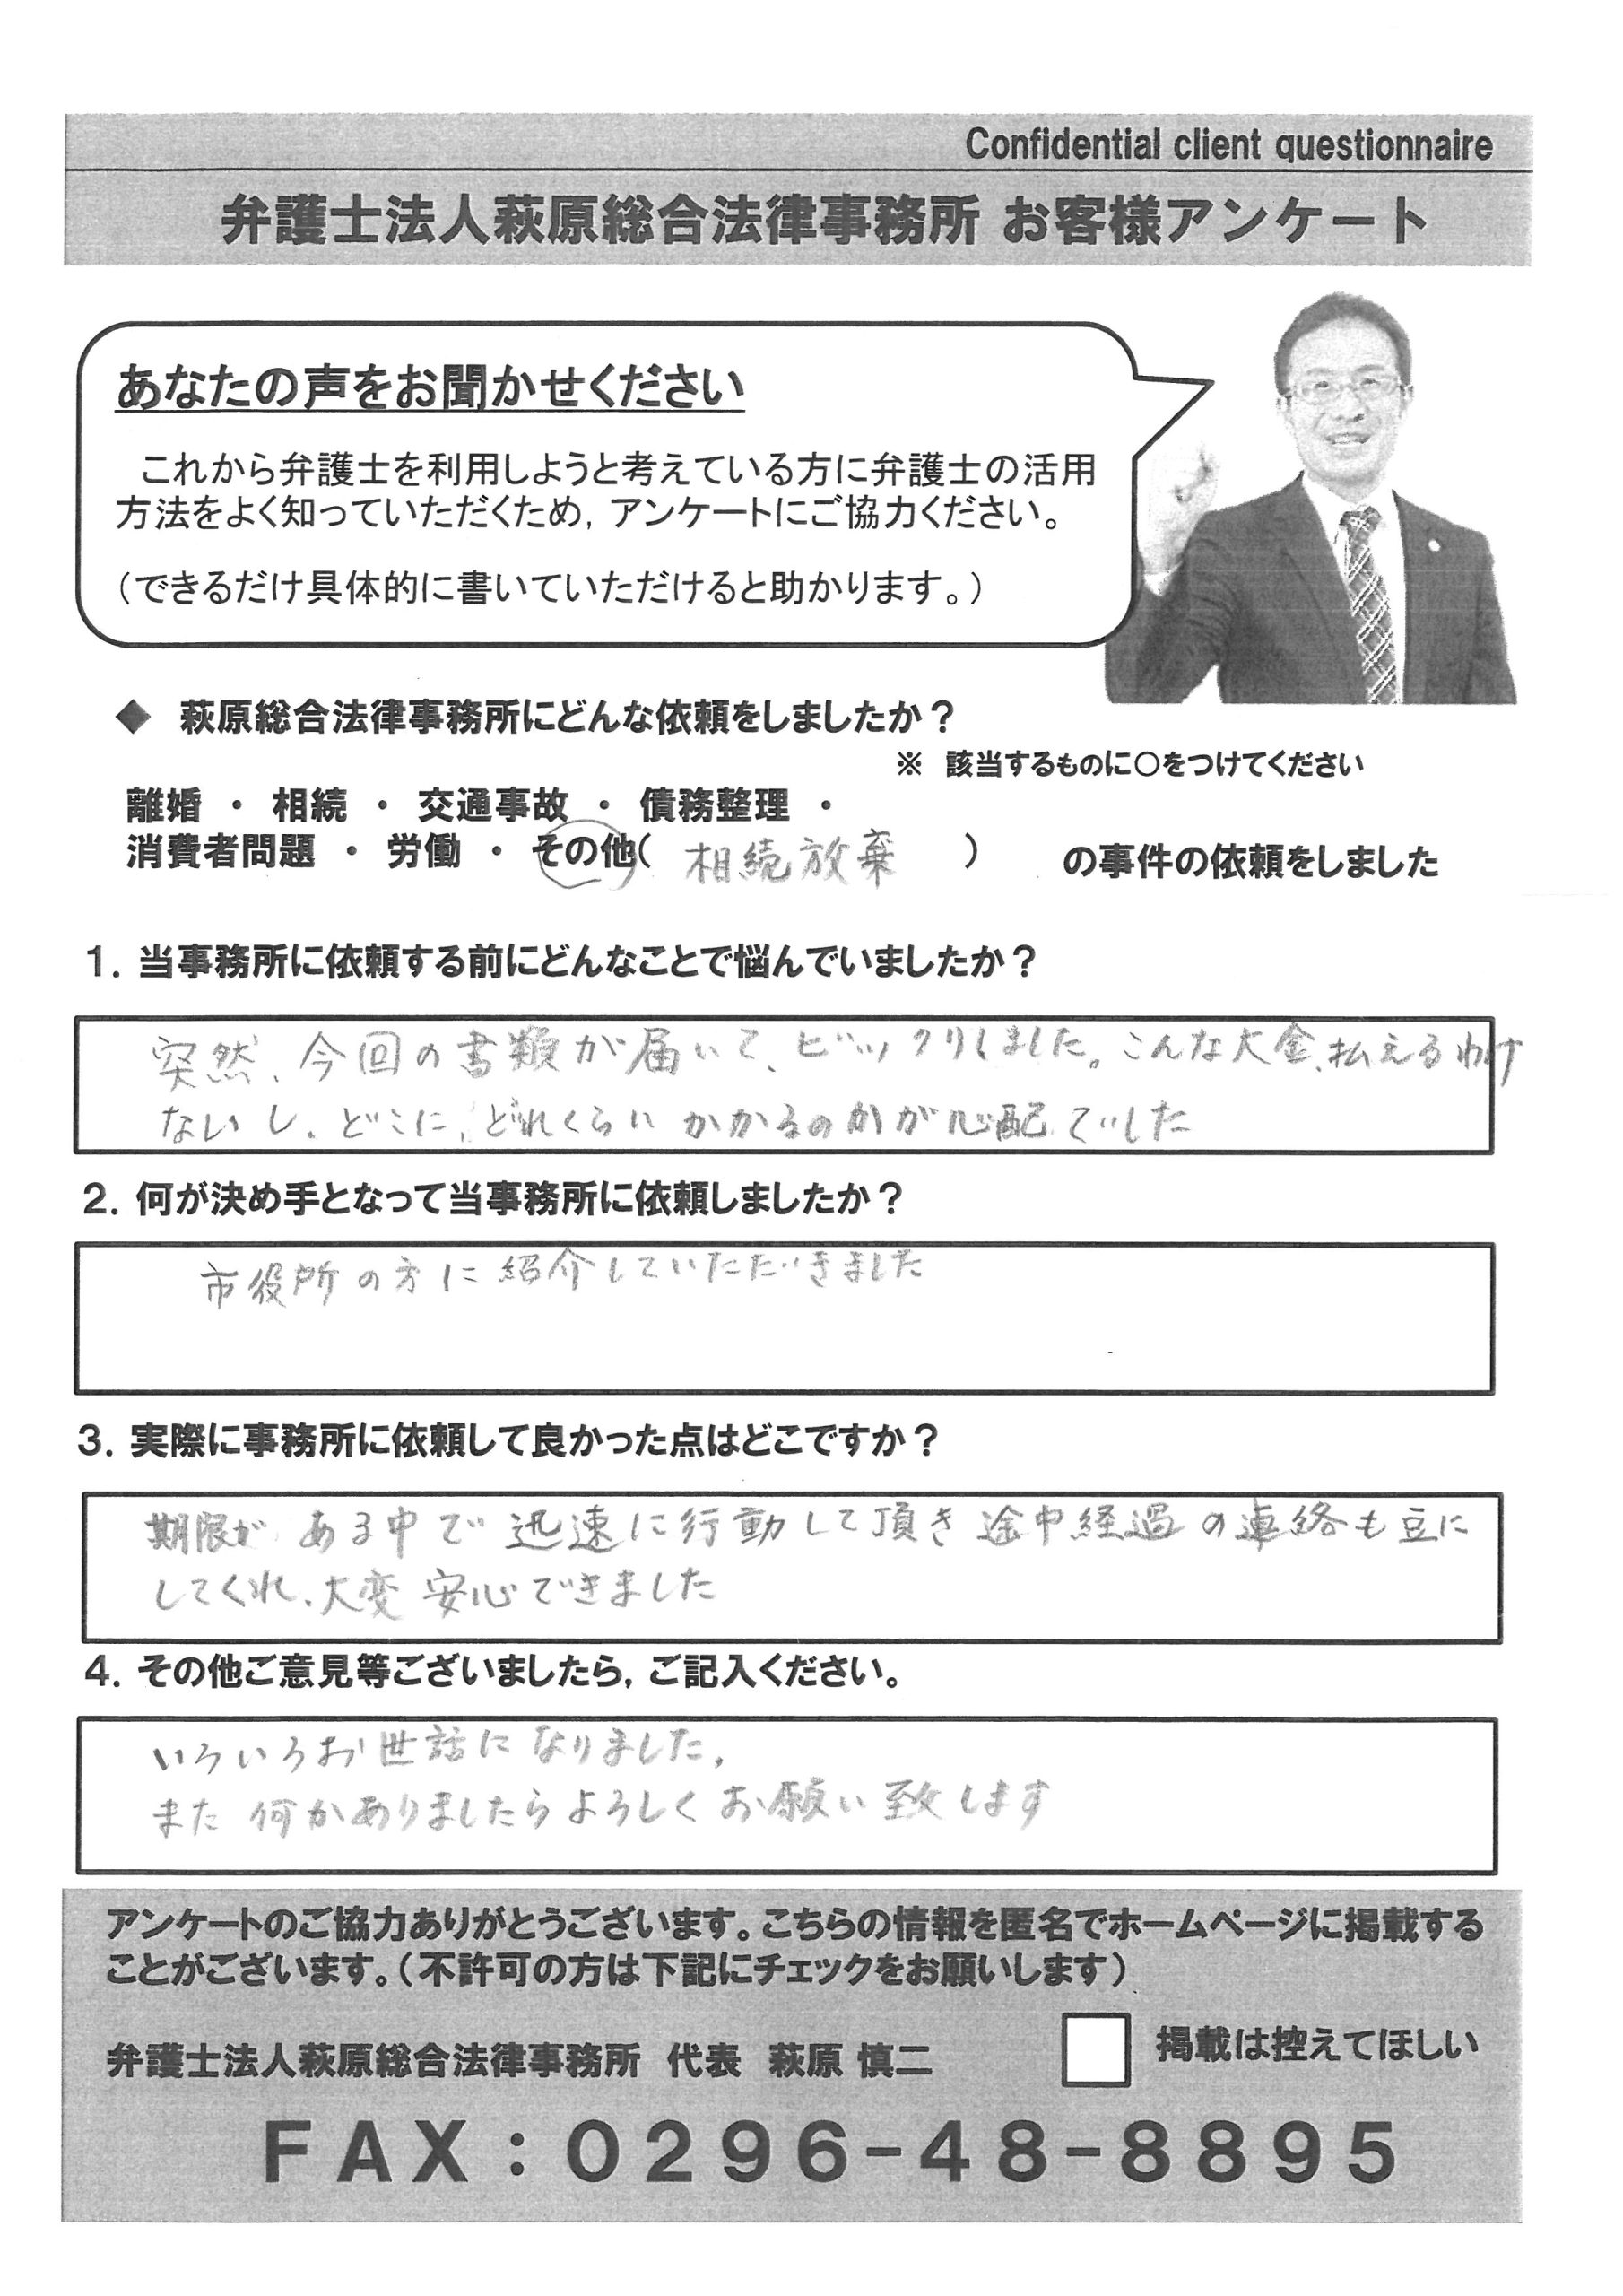 Confidential client questionnaire
弁護士法人萩原総合法律事務所 お客様アンケート
あなたの声をお聞かせください
これから弁護士を利用しようと考えている方に弁護士の活用
方法をよく知っていただくため，アンケートにご協力ください。
（できるだけ具体的に書いていただけると助かります。）
◆ 萩原総合法律事務所にどんな依頼をしましたか？
※ 該当するものに○をつけてください
離婚 ・ 相続 ・ 交通事故 ・ 債務整理 ・
消費者問題 ・ 労働 ・ その他（ 相続放棄 ） の事件の依頼をしました
1. 当事務所に依頼する前にどんなことで悩んでいましたか？
突然、今回の書類が届いて、ビックリしました。こんな大金、払えるわけ
ないし、どこに、どれくらいかかるのかが心配でした
2. 何が決め手となって当事務所に依頼しましたか？
市役所の方に紹介していただきました
3. 実際に事務所に依頼して良かった点はどこですか？
期限がある中で迅速に行動して頂き 途中経過の連絡も豆に
してくれ、大変安心できました
4. その他ご意見等ございましたら，ご記入ください。
いろいろお世話になりました。
また何かありましたらよろしくお願い致します
アンケートのご協力ありがとうございます。こちらの情報を匿名でホームページに掲載する
ことがございます。（不許可の方は下記にチェックをお願いします）
弁護士法人萩原総合法律事務所 代表 萩原 慎二
掲載は控えてほしい
ＦＡＸ：０２９６−４８−８８９５